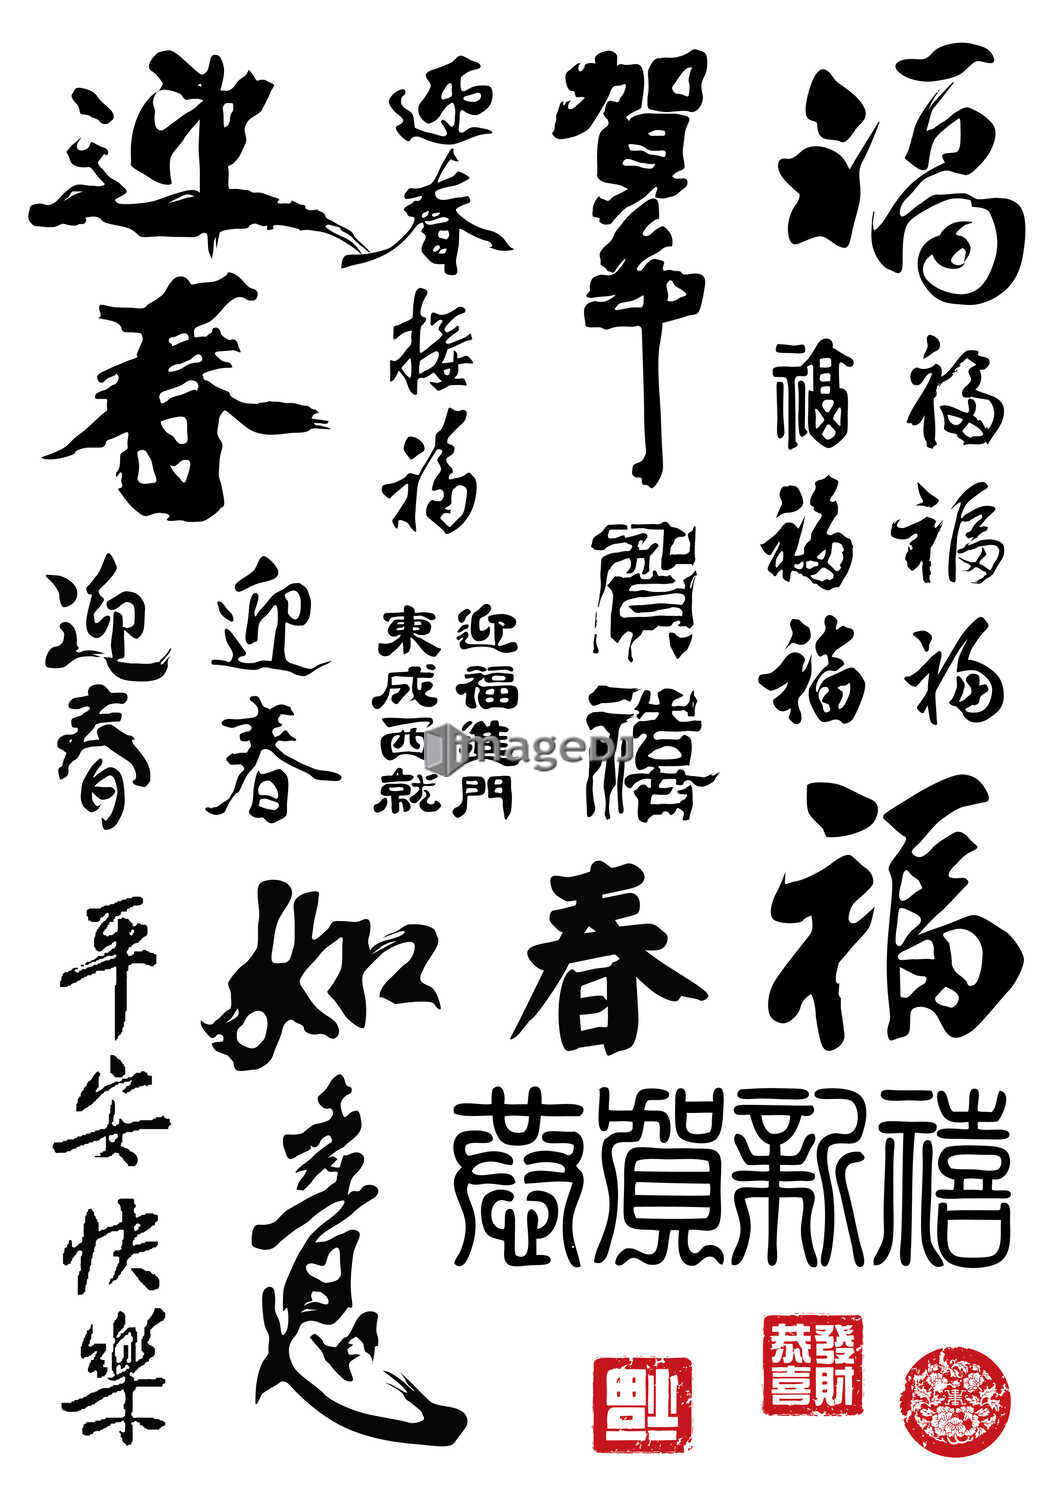 迎春
迎春接福
賀年
福
福
福
福
福
福
福
迎春
迎春
迎福進門
東成西就
賀禧
福
平安快樂
如意
春
恭賀新禧
恭喜
發財
福
imageDJ